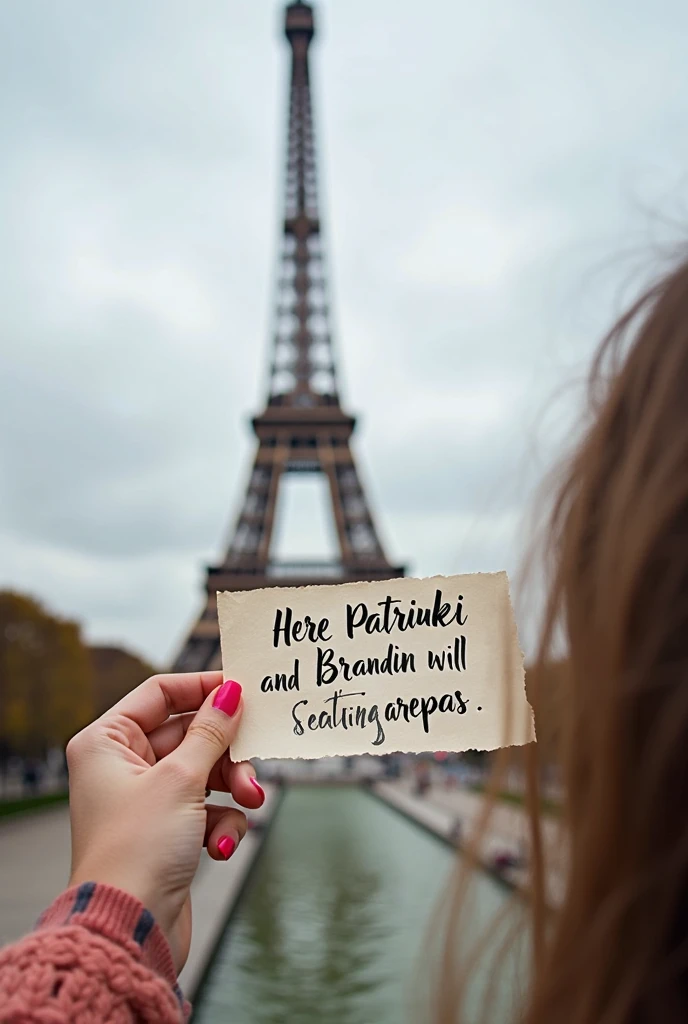 Here Patriuki
and Brandin will
Seatting arepas.